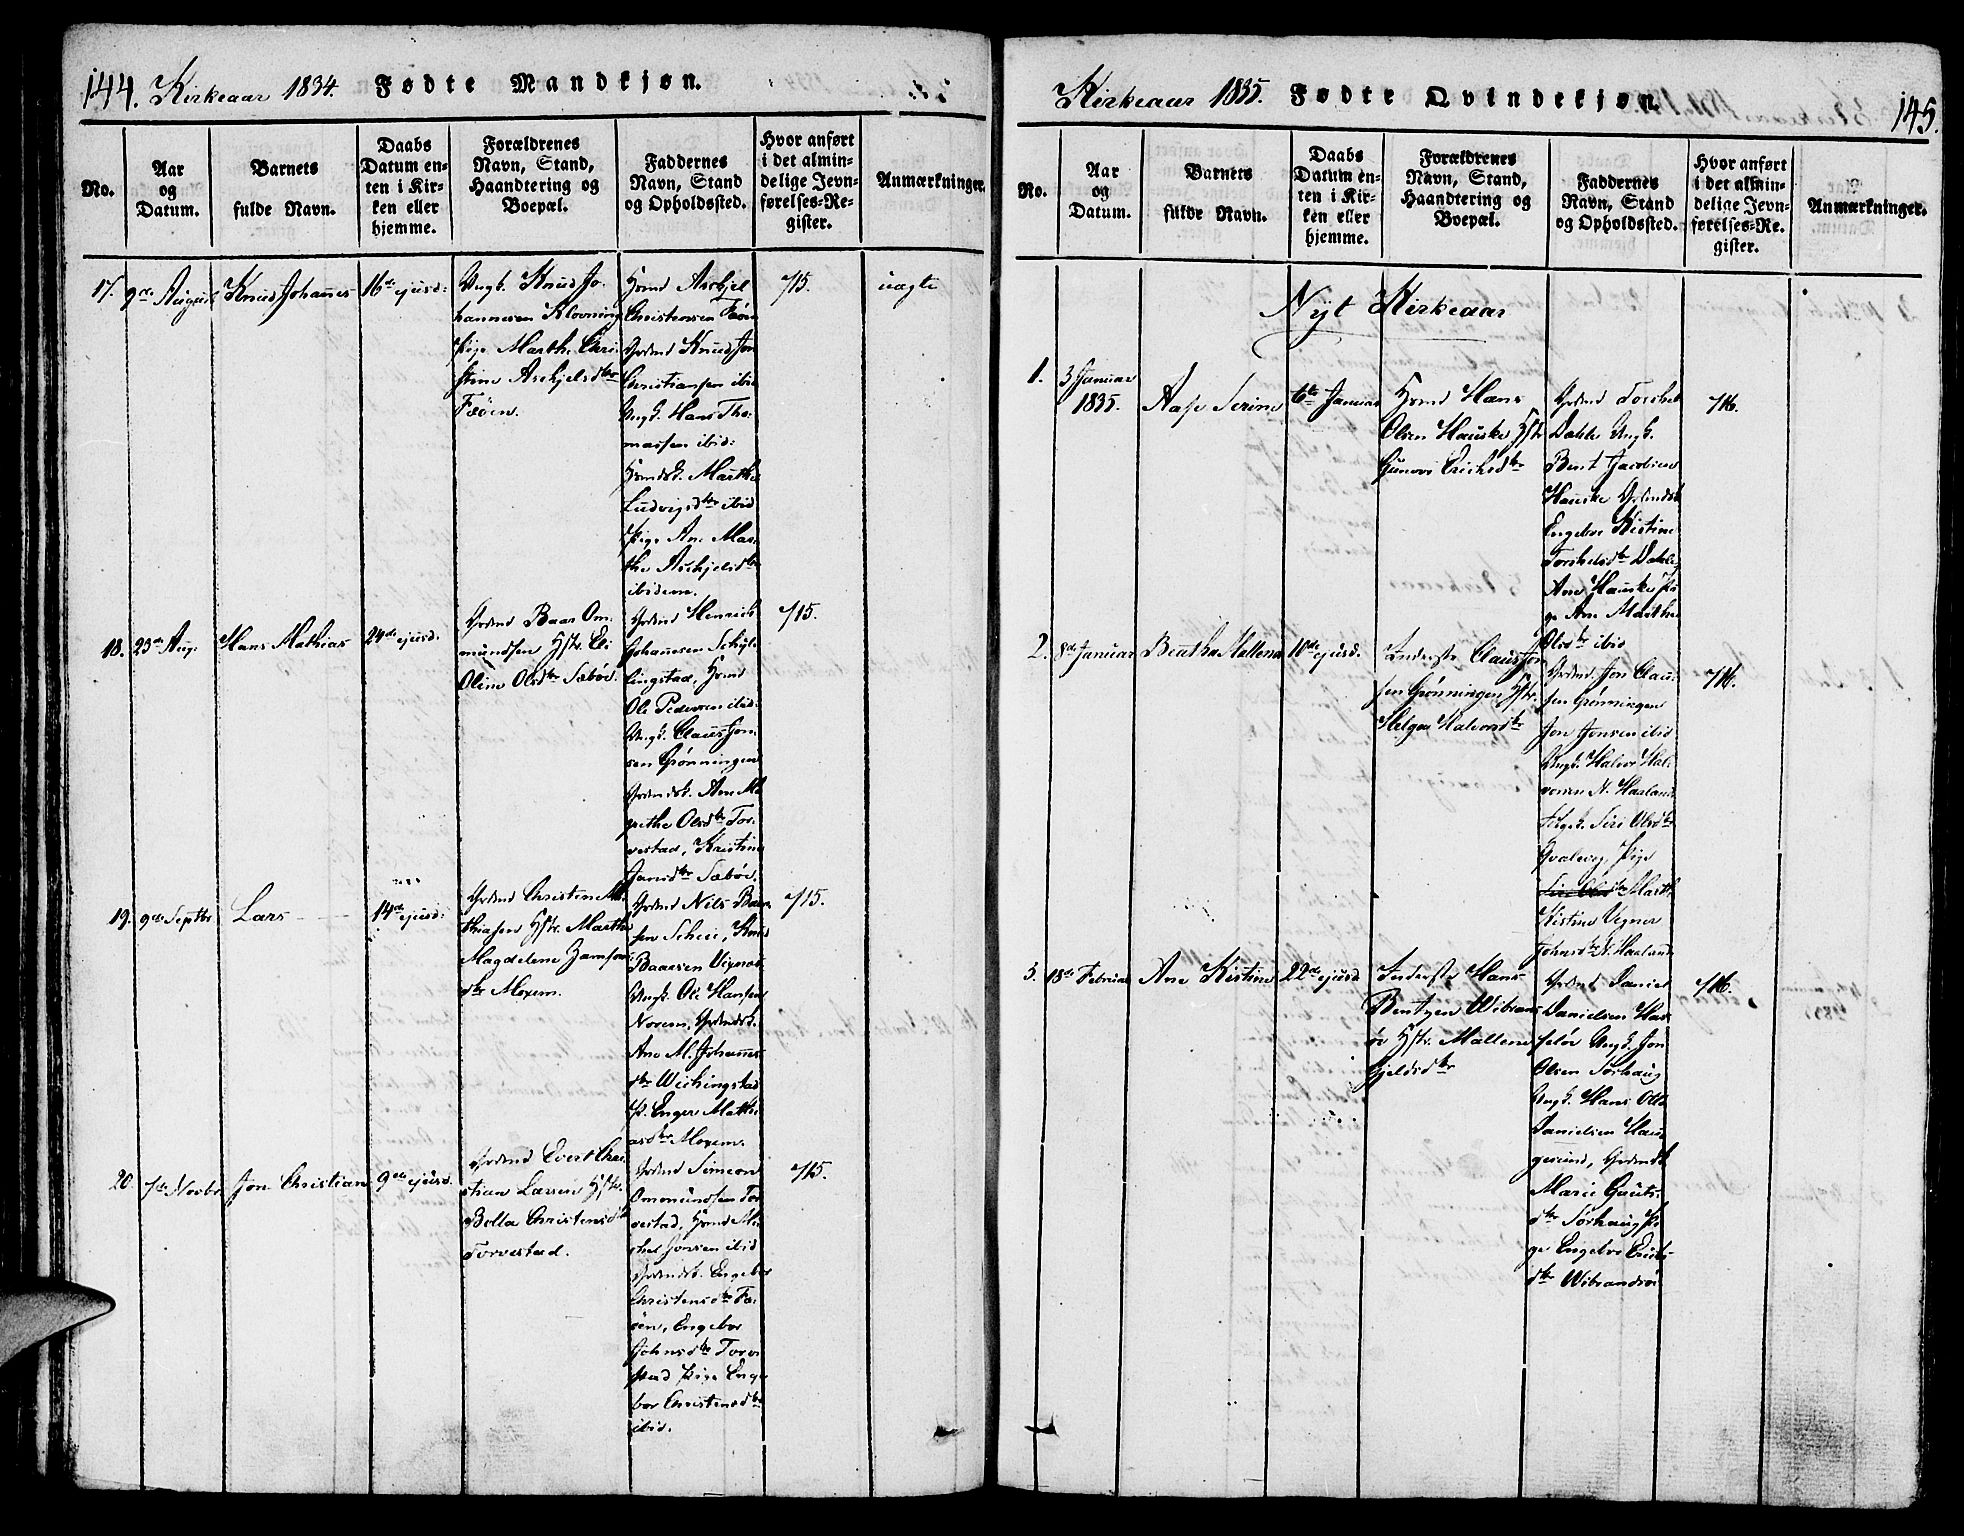 144. Kirkeaar 1834. Fødte Mandkjøn.
No.
Aar
og
Datum.
Barnets
fulde Navn.
Daabs
Datum en-
ten i Kir-
ken eller
hjemme.
Forældrenes
Navn, Stand,
Haandtering og
Boepæl.
Faddernes
Navn, Stand
og Opholdssted.
Hvor anført
i det almin-
delige Jevn-
førelses-Re-
gister.
Anmærkninger.
17.
9de August
Knud Johannes
16de ejusd:
Ungk. Knud Jo-
hannesen Klovning
Pige Marthe Chri-
stine Askjelsdtr
Feøen.
Hsmd Askjel
Christensen Feøen
Grdmd Knud Jon
Christiansen ibid
Ungk. Hans Tho-
massen ibid:
Hsmdsk. Marthe
Ludvigsdtr ibid
Pige Ane Mar-
the Askjelsdtr
ibidem.
715.
uægte
18.
23de Aug.
Hans Mathias
24de ejusd:
Grdmd Baar Om-
mundsen Hstr. Eli
Oline Olsdtr Sæbøe.
Grdmd Henrich
Johannesen Schjel-
lingstad, Hsmd
Ole Pedersen ibid:
Ungk. Claus Jon-
sen Grønningen
Grdmdsk. Ane Ma
grethe Olsdtr Tor-
vestad, Kristine
Jansdtr Sæbøe.
715.
19.
9de Septbr
Lars
14de ejusd:
Grdmd Christen Ma-
thiasen Hstr. Marthe
Magdelene Zamson-
dtr Moxem.
Grdmd Nils Baar-
sen Scheie, Knud
Baarsen Vixnæs
Ungk. Ole Hansen
Norem, Grdmdsk.
Ane M. Johannes-
dtr Wichingstad
P. Enger Mathi-
asdtr Moxem.
715.
20.
7de Novbr
Jon Christian
9de ejusd.
Grdmd Evert Chri-
stian Larsen Hstr.
Bolla Christensdtr
Torvestad.
Grdmd Simeon
Ommundsen Tor-
vestad, Hsmd Mi-
chel Jonsen ibid
Grdmdsk. Engebor
Christensdtr Fe-
øen, Engebor
Johnsdtr Torve
stad Pige Enge
bor Christensdtr
ibid.
715.
Kirkeaar 1835. Fødte Qvindekjøn. 145.
No.
Aar
og
Datum.
Barnets
fulde Navn.
Daabs
Datum en-
ten i Kir-
ken eller
hjemme.
Forældrenes
Navn, Stand,
Haandtering og
Boepæl.
Faddernes
Navn, Stand
og Opholdssted.
Hvor anført
i det almin-
delige Jevn-
førelses-Re-
gister.
Anmærkninger.
Nyt Kirkeaar
1.
3 Januar
1835.
Aase Serine
6te Januar
Hsmd Hans
Olsen Hauske Hstr
Gunvor Erichsdtr
Grdmd Torchel
Dahle Ungk.
Bent Jacobsen
Hauske Grdmdsk
Engebor Kistine
Torchelsdtr Dahle,
Ane Hauske Pi-
ge Ane Marthe
Olsdtr ibid
716.
2.
8de Januar
Bentha Mallena
10de ejusd.
Inderstr Claus Jon
sen Grønningen Hstr.
Helga Halvorsdtr
Grdmd Jon Clau-
sen Grønningen
Jon Jonsen ibid
Ungk. Halvor Hal-
vorsen N. Haaland
Siri Olsdtr
Qvalevig, Pige
Siri Olsdtr Marthe
Kistine Vegner
Johnsdtr N. Haaland
716.
3.
18de Februar
Ane Kistine
22de ejusd
Inderstr Hans
Bentzen Wibrans-
øe Hstr. Mallene
Gjelsdtr
Grdmd Daniel
Danielsen Has-
seløe Ungk. Jon
Olsen Sørhaug
Ungk. Hans Otto
Danielsen Hau-
gesund, Grdmdsk
Marie Gauts-
dtr Sørhaug Pi-
ge Engebor Knuds-
dtr Wibrandsøe
716.